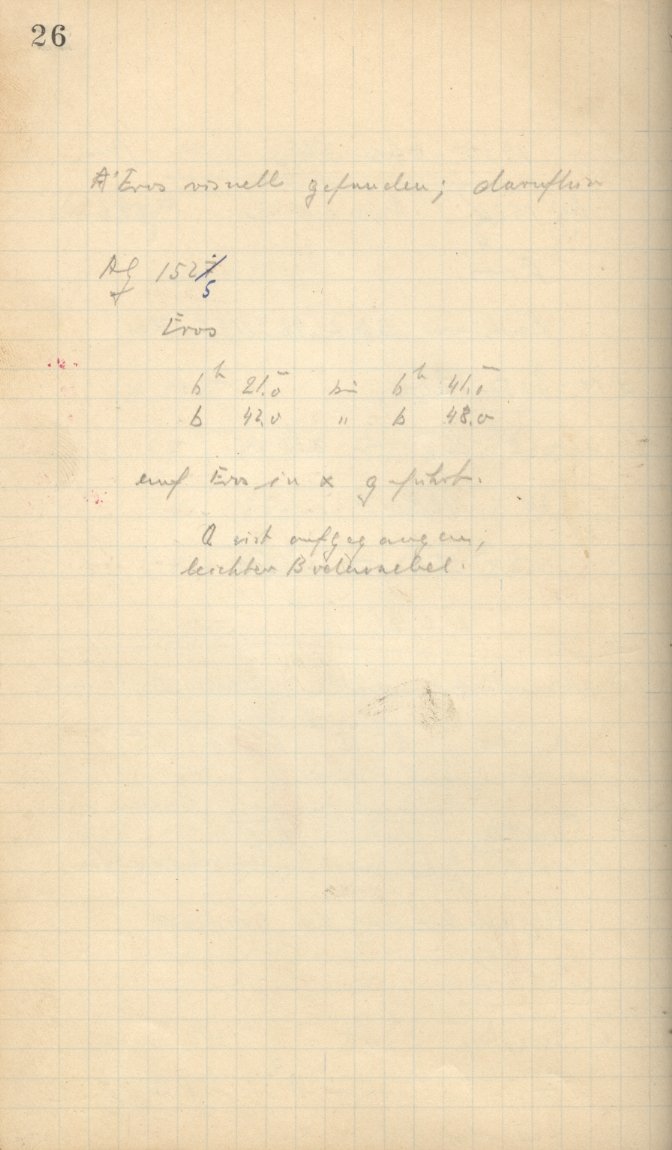 26
Eros visuell gefunden; daraufhin
Ag 1525
Eros
6h 21.0 bis 6h 41.0
6 42.0 " 6 48.0
auf Eros in x geführt.
ist aufgegangen,
leichter Bodennebel.